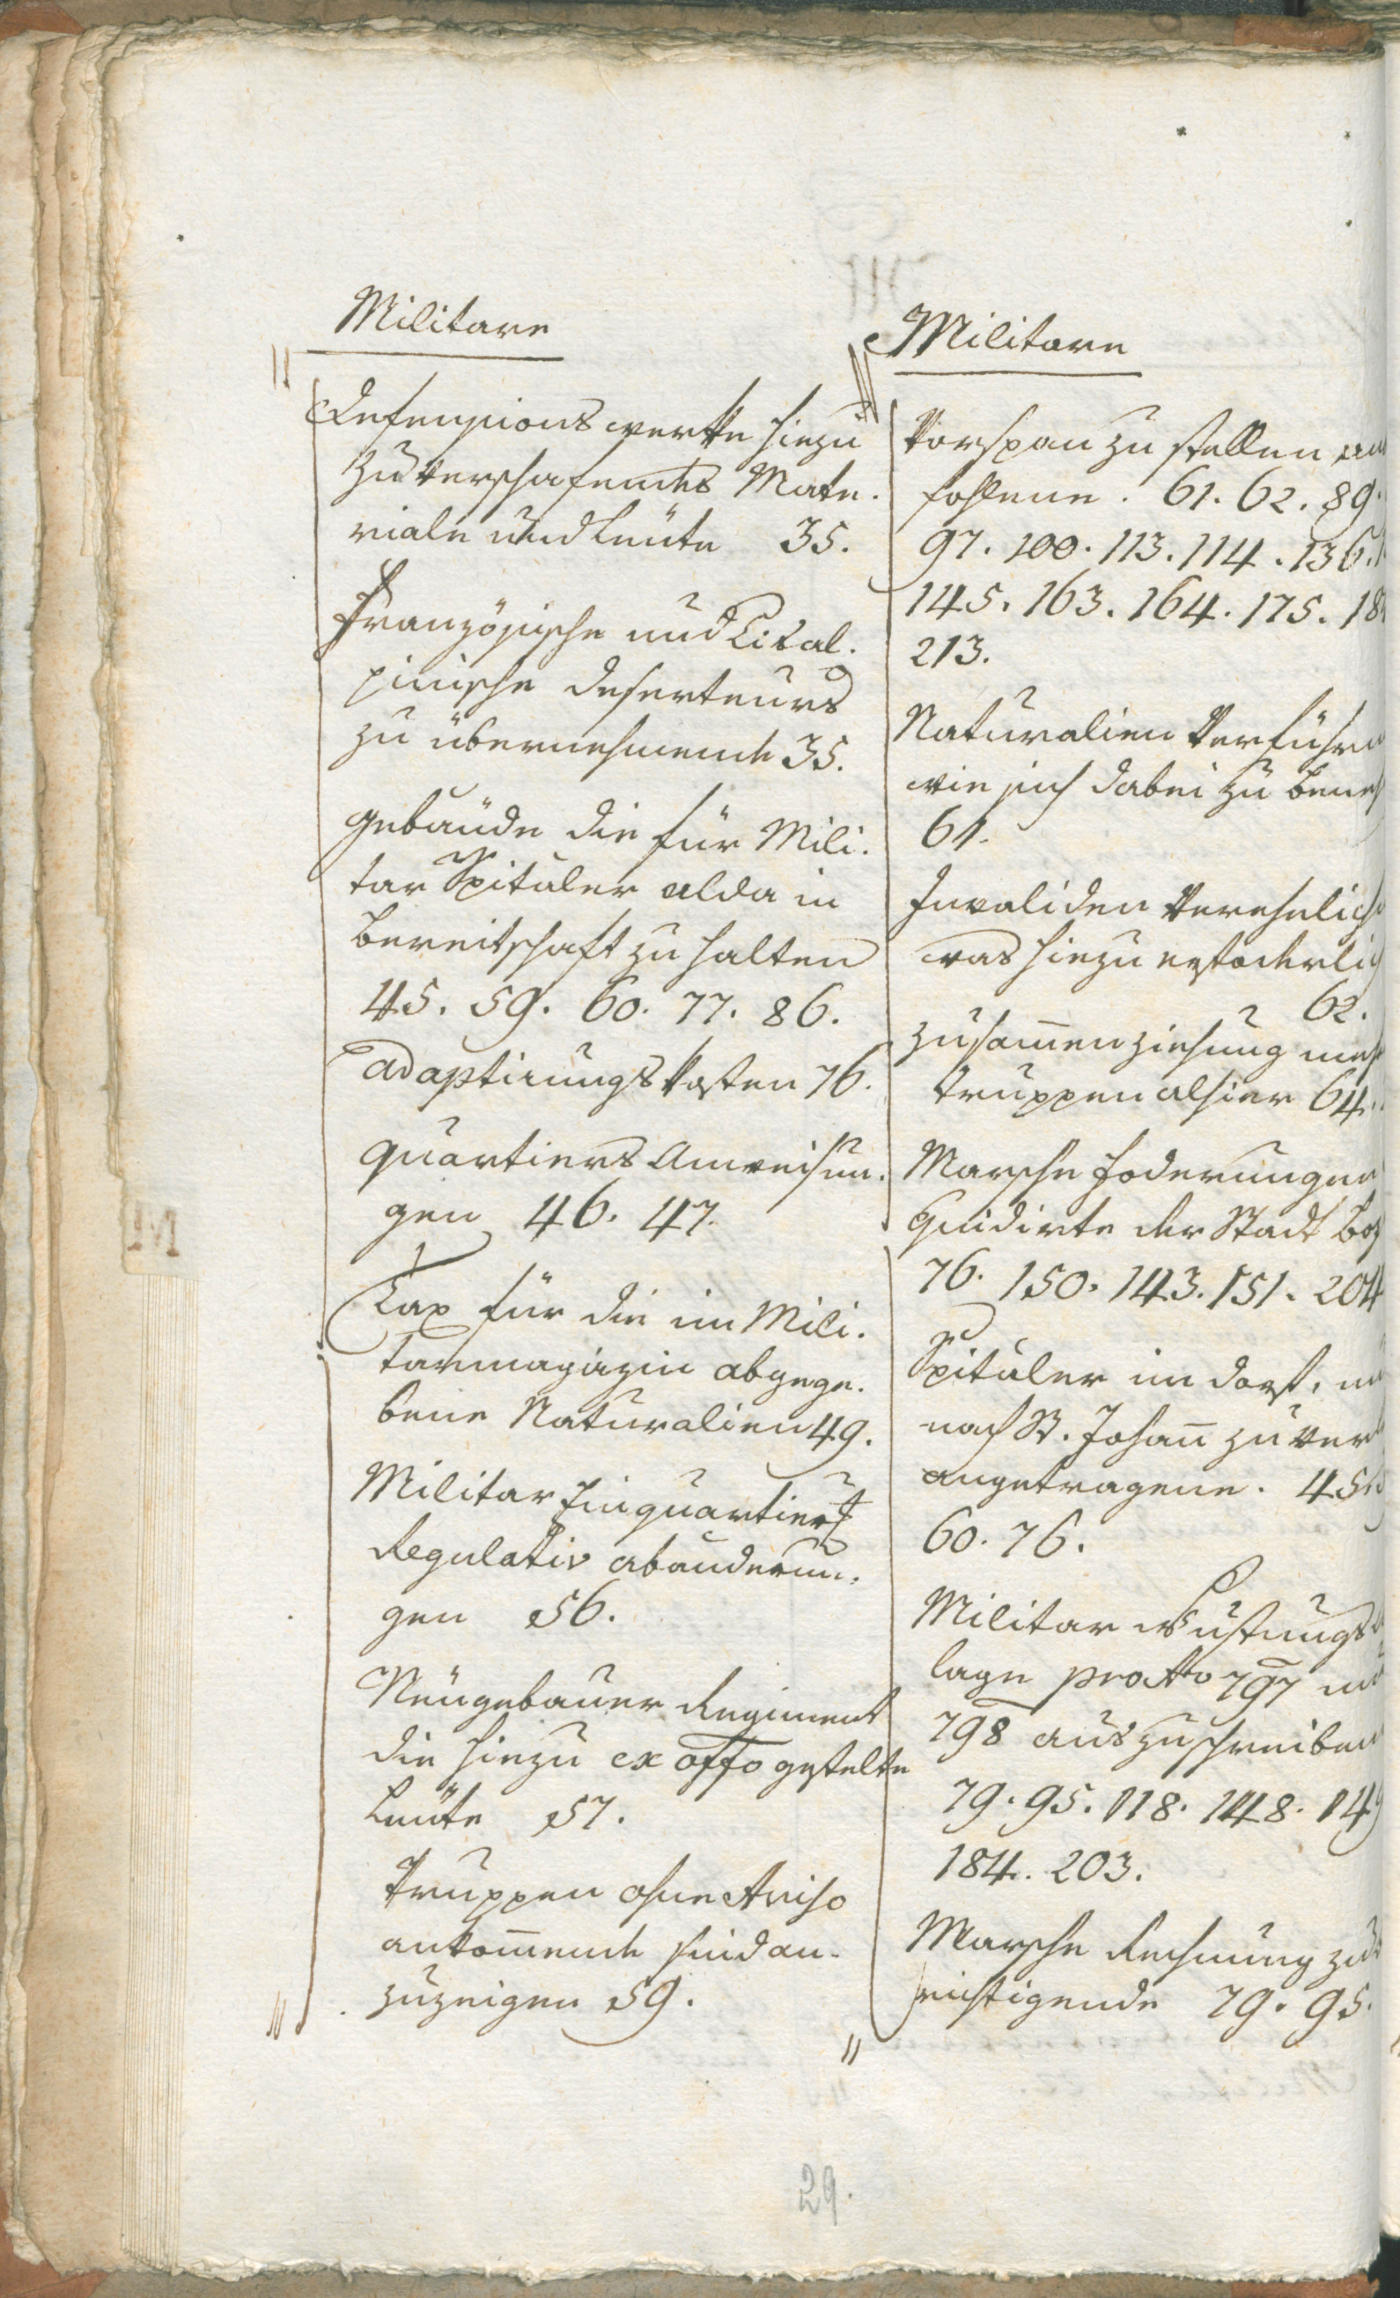 Militare
Defensions werkke hiezu
zu verschafendes Mate.
riale und Leüte 35.
Französische und Cisal.
pinische Deserteurs
zu übernehmende 35.
Gebäude die für Mili.
tar Spitäler alda in
Bereitschaft zu halten
45. 59. 60. 77. 86.
Adaptirungs kosten 76.
Quartiers Anweisun.
gen 46. 47.
Tax für die im Mili.
tarmagazin abgege.
bene Naturalien 49.
Militar Einquartier
Regulativ abänderun.
gen 56.
Neügebauer Regiment
die hiezu ex offo gestelte
Leüte 57.
Truppen ohne Aviso
ankom̄ende sind an-
zuzeigen 59.
Militare
Vorspan zu stellen an
fohlene. 61. 62. 89.
97. 100. 113. 114. 136.
145. 163. 164. 175. 18
213.
Naturalien Verführ
wie sich dabei zu beneh
61.
Invaliden Verehlich
was hiezu erfoderlich
62.
Zusam̄enziehung meh
Truppen alhier 64.
Marsche Foderungen
Quidirte der Stadt Boz
76. 150. 143. 151. 204
Spitäler im Dorf,
nach St. Johan̄ zu ver
angetragene. 45.
60. 76.
Militar Wustungs
lage pro Ao 797 und
798 auszuschreiben
79. 95. 118. 148. 149
184. 203.
Marsche Rechnung zu
richtigende 79. 95.
M
29.